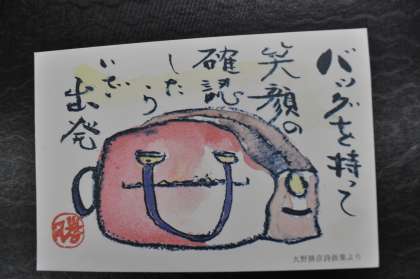 バッグを持って
笑顔の
確認
したら
いざ
出発
大野勝彦詩画集より